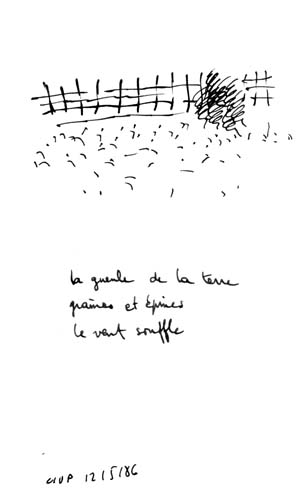 la gueule de la terre
graines et épines
le vent souffle
12/5/86